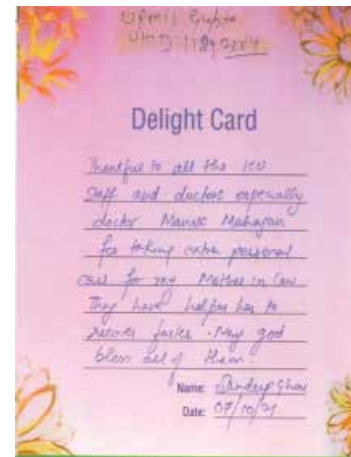 Urmil Gupta
Delight Card
Thankful to all the ICU
Staff and doctors especially
doctor Manav Mahajan
for taking extra personal
care for my Mother in law
They have helped her to
recover faster. May god
bless all of them
Name: Sandeep
Date: 07/10/21